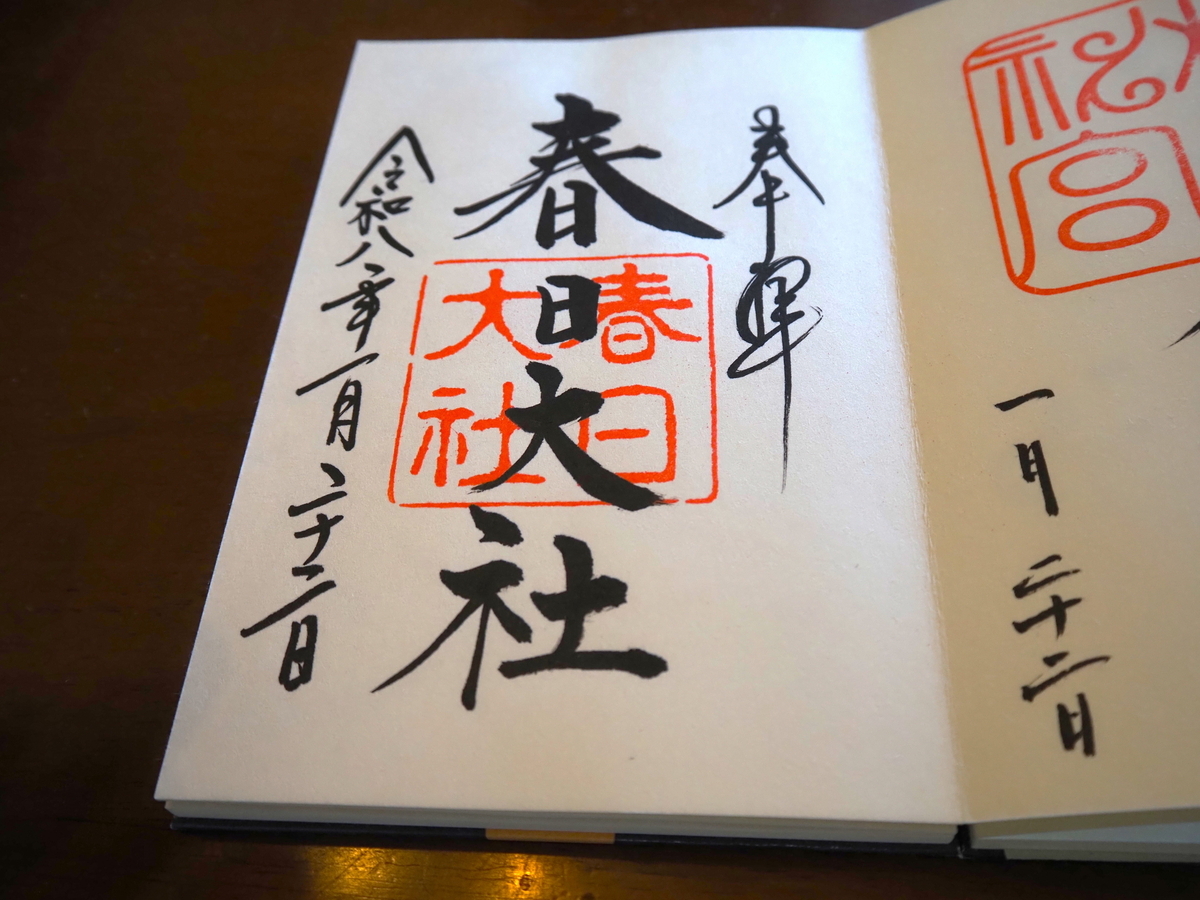 宮
一月二十二日
奉拝
春日大社
春日
大社
令和八年一月二十二日